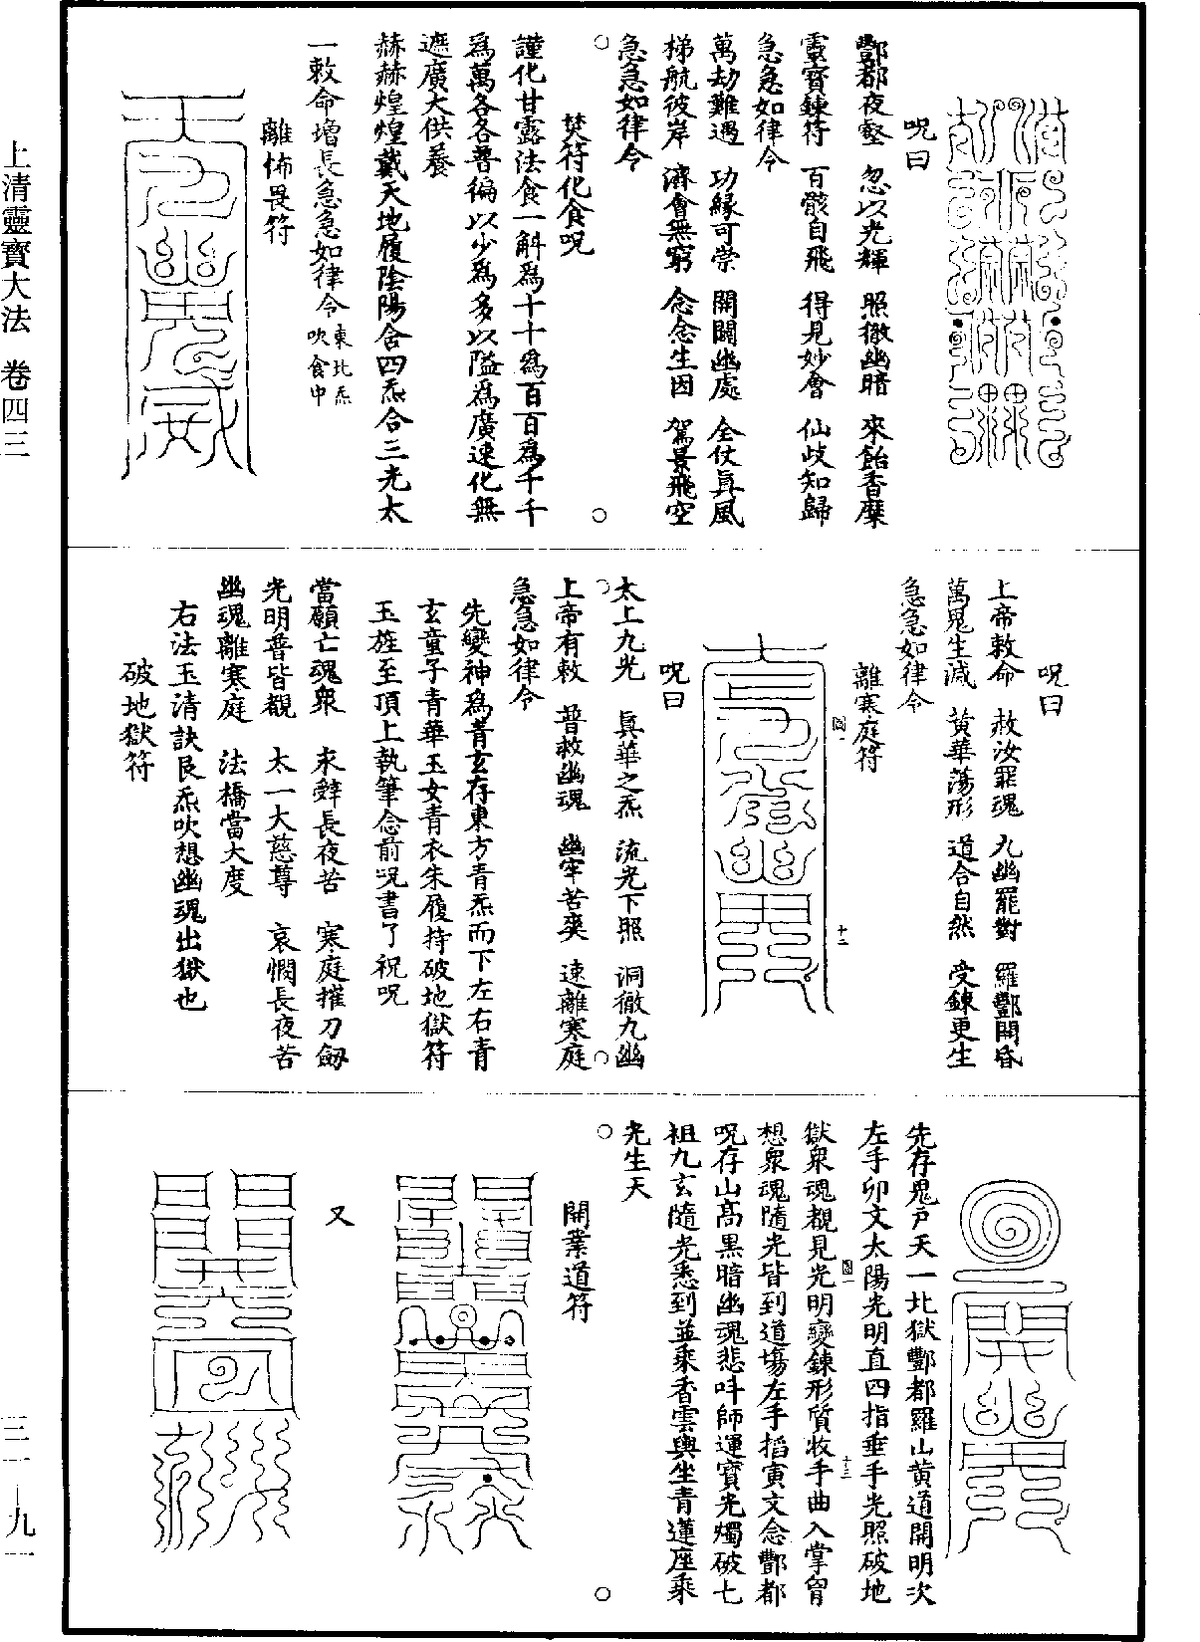 上清靈寶大法 卷四三
呪曰
酆都夜壑 忽以光輝 照徹幽暗 來飴香糜
靈寶鍊符 百骸自飛 得見妙會 仙歧知歸
急急如律令
萬劫難遇 功緣可崇 開闢幽處 全仗眞風
梯航彼岸 濟會無窮 念念生因 駕景飛空
急急如律令
焚符化食呪
謹化甘露法食一斛爲十十爲百百爲千千
爲萬各各普徧以少爲多以隘爲廣速化無
遮廣大供養
赫赫煌煌戴天地履陰陽含四炁合三光太
一敕命增長急急如律令東北炁吹食中
離怖畏符
呪曰
上帝敕命 赦汝罪魂 九幽罷對 羅酆開昏
萬鬼生滅 黄華蕩形 道合自然 受鍊更生
急急如律令
離寒庭符
十二
呪曰
太上九光 眞華之炁 流光下照 洞徹九幽
上帝有敕 普救幽魂 幽牢苦爽 速離寒庭
急急如律令
先變神爲青玄存東方青炁而下左右青
玄童子青華玉女青衣朱履持破地獄符
玉旌至頂上執筆念前呪書了祝呪
當願亡魂衆 永辭長夜苦 寒庭摧刀劒
光明普皆覩 太一大慈尊 哀憫長夜苦
幽魂離寒庭 法橋當大度
右法玉清訣艮炁吹想幽魂出獄也
破地獄符
先存鬼戸天一北獄酆都羅山黄道開明次
左手卯文太陽光明直四指垂手光照破地
獄衆魂覩見光明變鍊形質收手曲入掌胷
想衆魂隨光皆到道場左手搯寅文念酆都
呪存山髙黒暗幽魂悲呌師運寶光燭破七
祖九玄隨光悉到並乘香雲與坐青蓮座乘
光生天
十三
開業道符
又
三一－九一